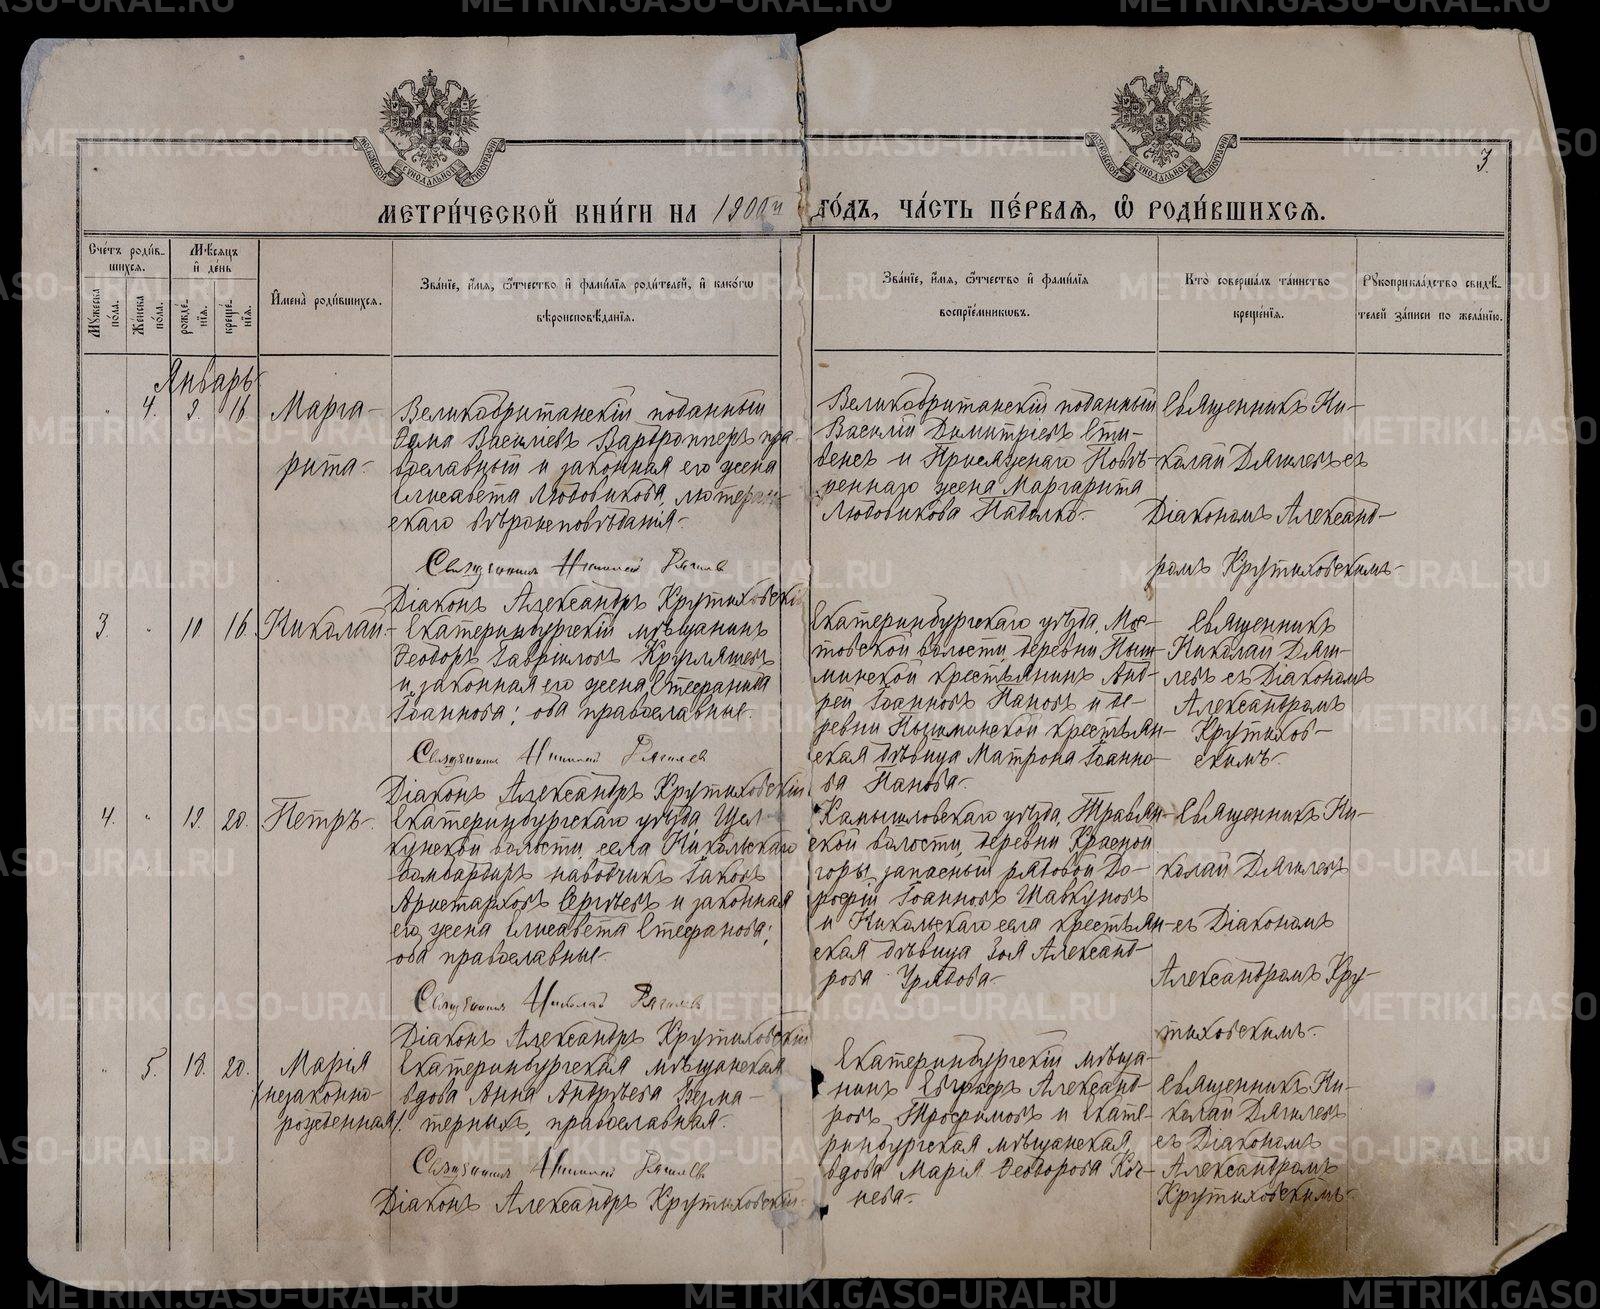 МЕТРИ́ЧЕСКОЙ КНИ́ГИ НА 1900й ГО́ДЪ, ЧА́СТЬ ПЕ́РВАѦ, Ѿ РОДИ́ВШИХСѦ.
3.
Сче́тъ роди́в-
шихсѧ.
Мѣ́сѧцъ
и҆ де́нь
Мꙋ́жеска по́ла.
Же́нска по́ла.
рожде́-
нїѧ.
креще́-
нїѧ.
И҆мена̀ роди́вшихсѧ.
Зва́нїе, и҆́мѧ, ѻ҆́тчество и҆ фами́лїѧ роди́телей, и҆ како́гѡ
вѣроисповѣ́данїѧ.
Зва́нїе, и҆́мѧ, ѻ҆́тчество и҆ фами́лїѧ
воспрїе́мникѡвъ.
Кто̀ соверша́лъ та́инство
креще́нїѧ.
Рꙋкоприкла́дство свидѣ́-
телей за́писи по жела́нїю.
Январь
4. 9. 16.
Марга-
рита.
Великобританскій поданный
Ѳома Василіевъ Вардропперъ пра-
вославный и законная его жена
Елисавета Людовикова, лютеран-
скаго вѣроисповѣданія.
Священникъ Николай Дягилев
Діаконъ Александръ Крутиховскій
Великобританскій поданный
Василій Димитріевъ Сти-
венсъ и Присяжнаго Повѣ-
реннаго жена Маргарита
Людовикова Падалко.
Священникъ Ни-
колай Дягилевъ съ
Діакономъ Александ-
ромъ Крутиховскимъ.
3. 10. 16.
Николай.
Екатеринбургскій мѣщанинъ
Ѳеодоръ Гавріиловъ Кругляшевъ
и законная его жена Стефанида
Іоаннова; оба православные.
Священникъ Николай Дягилев
Діаконъ Александръ Крутиховскій
Екатеринбургскаго уѣзда, Мос-
товской волости, деревни Пыш-
минской крестьянинъ Анд-
рей Іоанновъ Пановъ и де-
ревни Пышминской крестьян-
ская дѣвица Матрона Іоанно-
ва Панова.
Священникъ
Николай Дяги-
левъ съ Діакономъ
Александромъ
Крутихов-
скимъ.
4. 19. 20.
Петръ.
Екатеринбургскаго уѣзда, Щел-
кунской волости, села Никольскаго
бомбардиръ наводчикъ Іаковъ
Аристарховъ Сергѣевъ и законная
его жена Елисавета Стефанова;
оба православные.
Священникъ Николай Дягилев
Діаконъ Александръ Крутиховскій
Камышловскаго уѣзда, Травян-
ской волости, деревни Красной
горы, запасный рядовой До-
рофей Іоанновъ Шавкуновъ
и Никольскаго села крестьян-
ская дѣвица Зоя Александ-
рова Урядова.
Священникъ Ни-
колай Дягилевъ
съ Діакономъ
Александромъ Кру-
тиховскимъ.
5. 18. 20.
Марія
(незаконно-
рожденная).
Екатеринбургская мѣщанская
вдова Анна Андрѣева Безма-
терныхъ, православная.
Священникъ Николай Дягилев
Діаконъ Александръ Крутиховскій
Екатеринбургскій мѣща-
нинъ Евграфъ Александ-
ровъ Трофимовъ и Екате-
ринбургская мѣщанская
вдова Марія Ѳеодорова Коч-
нева.
Священникъ Ни-
колай Дягилевъ
съ Діакономъ
Александромъ
Крутиховскимъ.